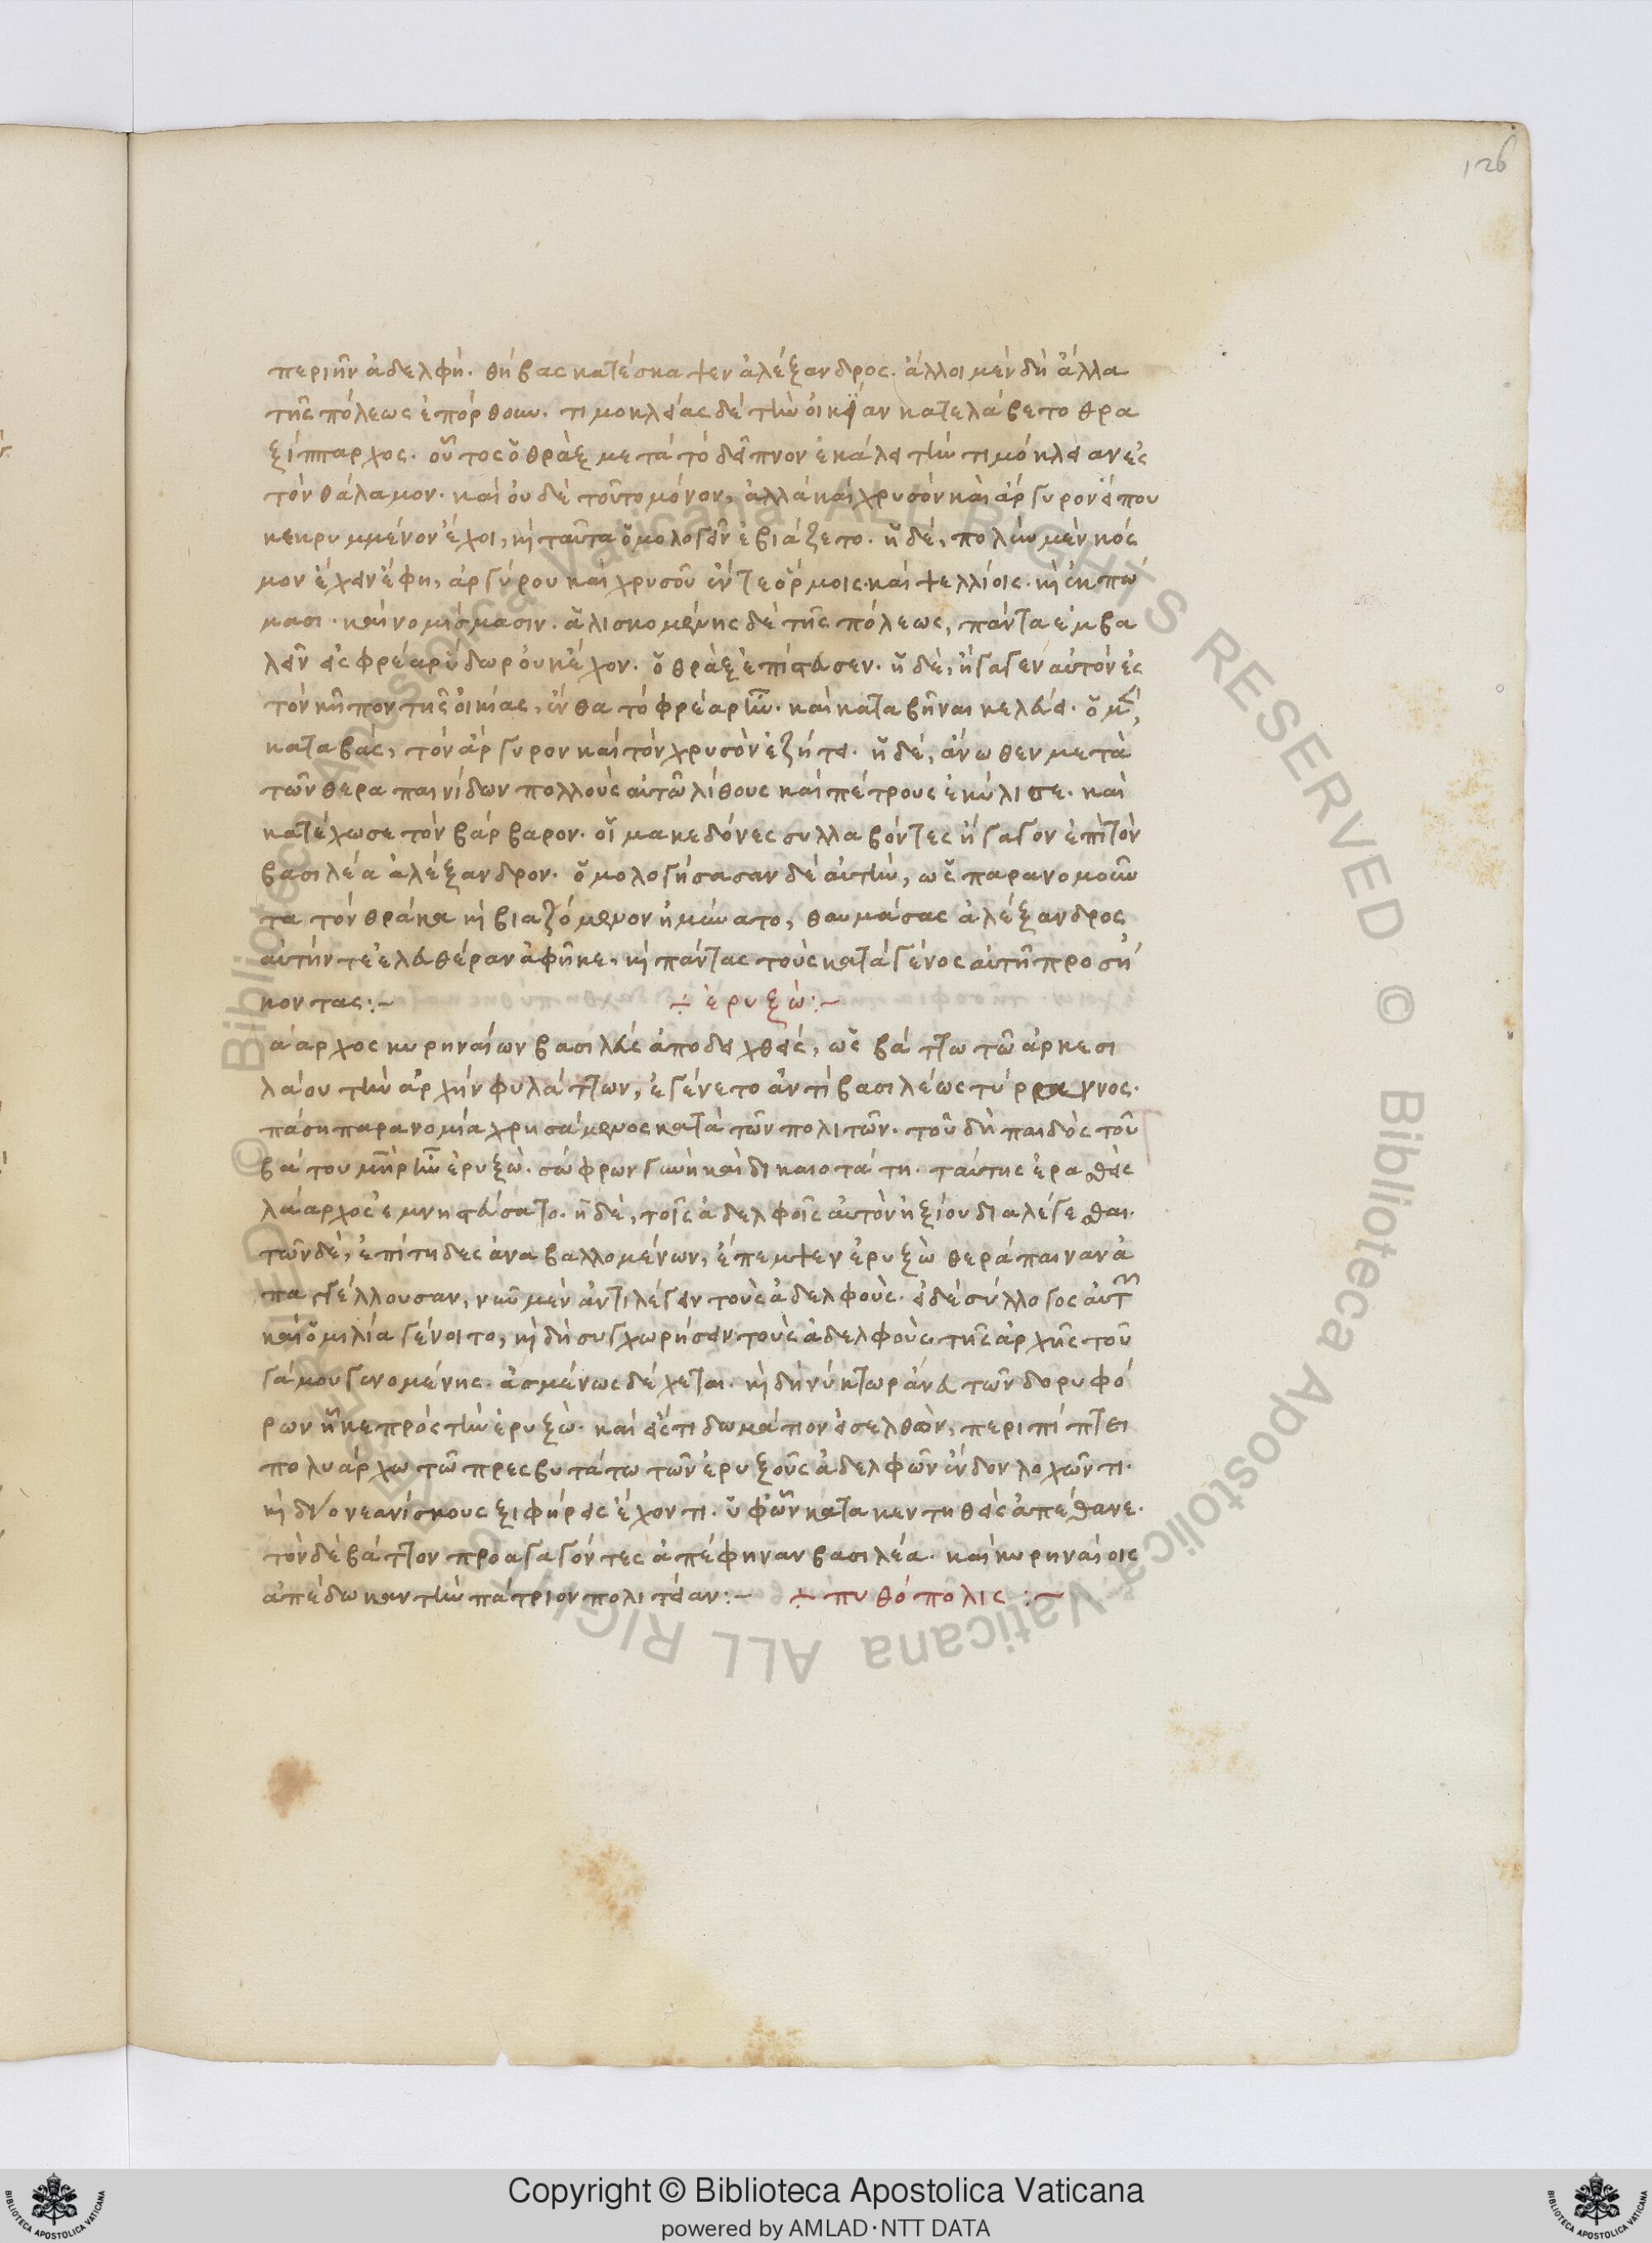 126
περιῆν ἀδελφή. θήβας κατέσκαψεν ἀλέξανδρος. ἄλλοι μὲν δὴ ἄλλα
τῆς πόλεως ἐπόρθουν. τιμοκλείας δὲ τὴν οἰκίαν κατελάβετο θρα
ξίππαρχος. οὗτος ὁ θρὰξ μετὰ τὸ δεῖπνον ἐκάλει τὴν τιμόκλειαν εἰς
τὸν θάλαμον. καὶ οὐδὲ τοῦτο μόνον, ἀλλὰ καὶ χρυσὸν καὶ ἄργυρον εἴ που
κεκρυμμένον ἔχοι, κ̀ ταῦτα ὁμολογεῖν ἐβιάζετο. ἡ δέ, πολὺν μὲν κόσ
μον ἔχειν ἔφη, ἀργύρου καὶ χρυσοῦ ἔν τε ὅρμοις. καὶ ψελλίοις. κ̀ ἐκπώ
μασι. καὶ νομίσμασιν. ἁλισκομένης δὲ τῆς πόλεως, πάντα ἐμβα
λεῖν εἰς φρέαρ ὕδωρ οὐκ ἔχον. ὁ θρὰξ ἐπίστευσεν. ἡ δέ, ἤγαγεν αὐτὸν εἰς
τὸν κῆπον τῆς οἰκίας, ἔνθα τὸ φρέαρ ἦν. καὶ καταβῆναι κελεύει. ὁ μὲν,
καταβάς, τὸν ἄργυρον καὶ τὸν χρυσὸν ἐζήτει. ἡ δέ, ἄνωθεν μετὰ
τῶν θεραπαινίδων πολλοὺς αὐτῶ λίθους καὶ πέτρους ἐκύλισε. καὶ
κατέχωσε τὸν βάρβαρον. οἱ μακεδόνες συλλαβόντες ἤγαγον ἐπὶ τὸν
βασιλέα ἀλέξανδρον. ὁμολογήσασαν δὲ αὐτὴν, ὡς παρανομοῦν
τα τὸν θρᾶκα κ̀ βιαζόμενον ἠμύνατο, θαυμάσας ἀλέξανδρος
αὐτήν τε ἐλευθέραν ἀφῆκε, κ̀ πάντας τοὺς κατὰ γένος αὐτῆ προσή
κοντας:~ ÷ ἐρυξώ:~
άαρχος κυρηναίων βασιλεὺς ἀποδειχθείς, ὡς βάττω τῶ ἀρκεσι
λάου τὴν ἀρχὴν φυλάττων, ἐγένετο ἀντὶ βασιλέως τύραννος.
πάση παρανομία χρησάμενος κατὰ τῶν πολιτῶν. τοῦ δὴ παιδὸς τοῦ
βάτου μ̅η̅ρ ἦν ἐρυξώ. σώφρων γυνὴ καὶ δικαιοτάτη. ταύτης ἐρασθεὶς
λάαρχος ἐμνηστεύσατο. ἡ δὲ, τοῖς ἀδελφοῖς αὐτὸν ἠξίου διαλέγεσθαι.
τῶν δὲ, ἐπίτηδες ἀναβαλλομένων, ἔπεμψεν ἐρυξὼ θεράπαιναν ἀ
παγγέλλουσαν, νῦν μὲν ἀντιλέγειν τοὺς ἀδελφούς. εἰ δὲ σύλλογος αὐτ
καὶ ὁμιλία γένοιτο, κ̀ δὴ συγχωρήσειν τοὺς ἀδελφοὺς τῆς ἀρχῆς τοῦ
γάμου γενομένης. ἀσμένως δέχεται. κ̀ δὴ νύκτωρ ἄνευ τῶν δορυφό
ρων ἧκε πρὸς τὴν ἐρυξώ. καὶ εἴς τι δωμάτιον εἰσελθὼν, περιπίπτει
πολυάρχω τῶ πρεσβυτάτω τῶν ἐρυξοῦς ἀδελφῶν ἔνδον λοχῶντι.
κ̀ δύο νεανίσκους ξιφήρεις ἔχοντι. ὑφ' ὧν κατακεντηθεὶς ἀπέθανε.
τὸν δὲ βάττον προαγαγόντες ἀπέφηναν βασιλέα. καὶ κυρηναίοις
ἀπέδωκαν τὴν πάτριον πολιτείαν:~ ÷ πυθόπολις:~
© Biblioteca Apostolica Vaticana ALL RIGHTS RESERVED © Biblioteca Apostolica Vaticana ALL RIGHTS RESERVED
Copyright © Biblioteca Apostolica Vaticana
powered by AMLAD·NTT DATA
BIBLIOTECA APOSTOLICA VATICANA
BIBLIOTECA APOSTOLICA VATICANA